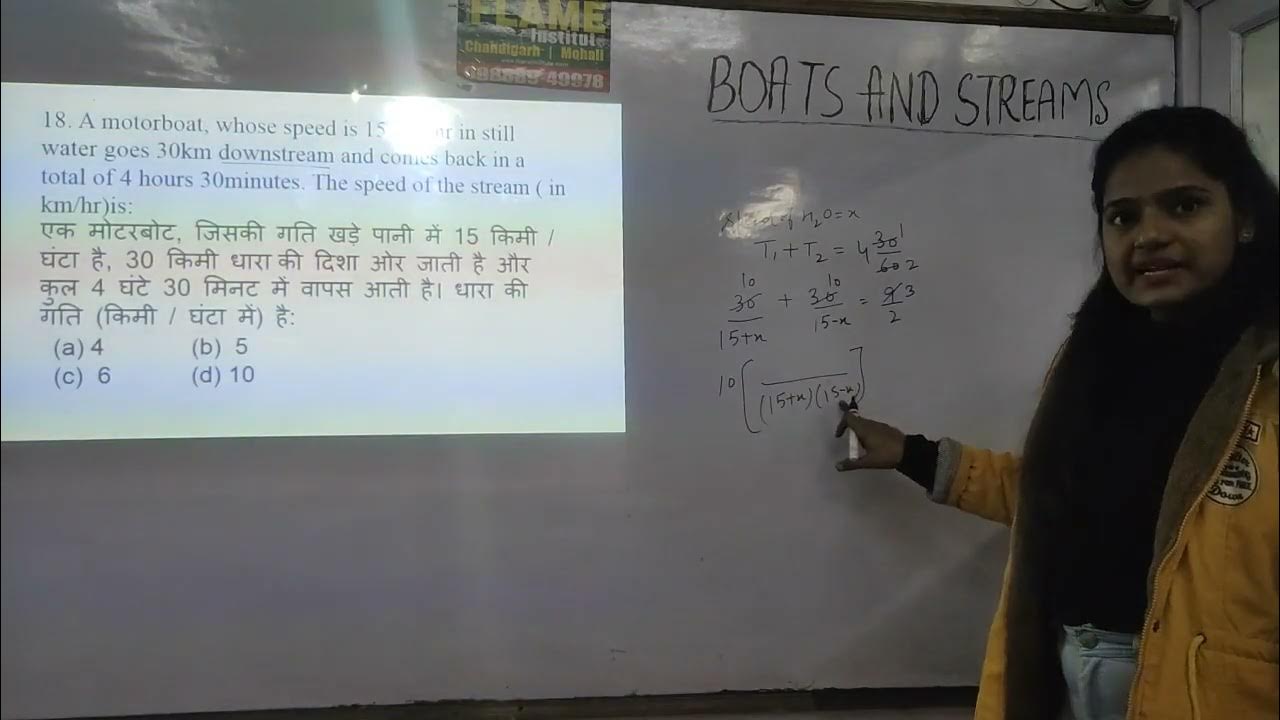 FLAME
Institute
Chandigarh | Mohali
49978
BOATS AND STREAMS
18. A motorboat, whose speed is 15 in still
water goes 30km downstream and comes back in a
total of 4 hours 30minutes. The speed of the stream ( in
km/hr)is:
एक मोटरबोट, जिसकी गति खड़े पानी में 15 किमी /
घंटा है, 30 किमी धारा की दिशा ओर जाती है और
कुल 4 घंटे 30 मिनट में वापस आती है। धारा की
गति (किमी / घंटा में) है:
(a) 4 (b) 5
(c) 6 (d) 10
of H₂O = x
T₁ + T₂ = 4 30 1
60 2
10 10
30 + 30 = 9 3
15+x 15-x 2
10 [ ]
(15+x)(15-x)
Down